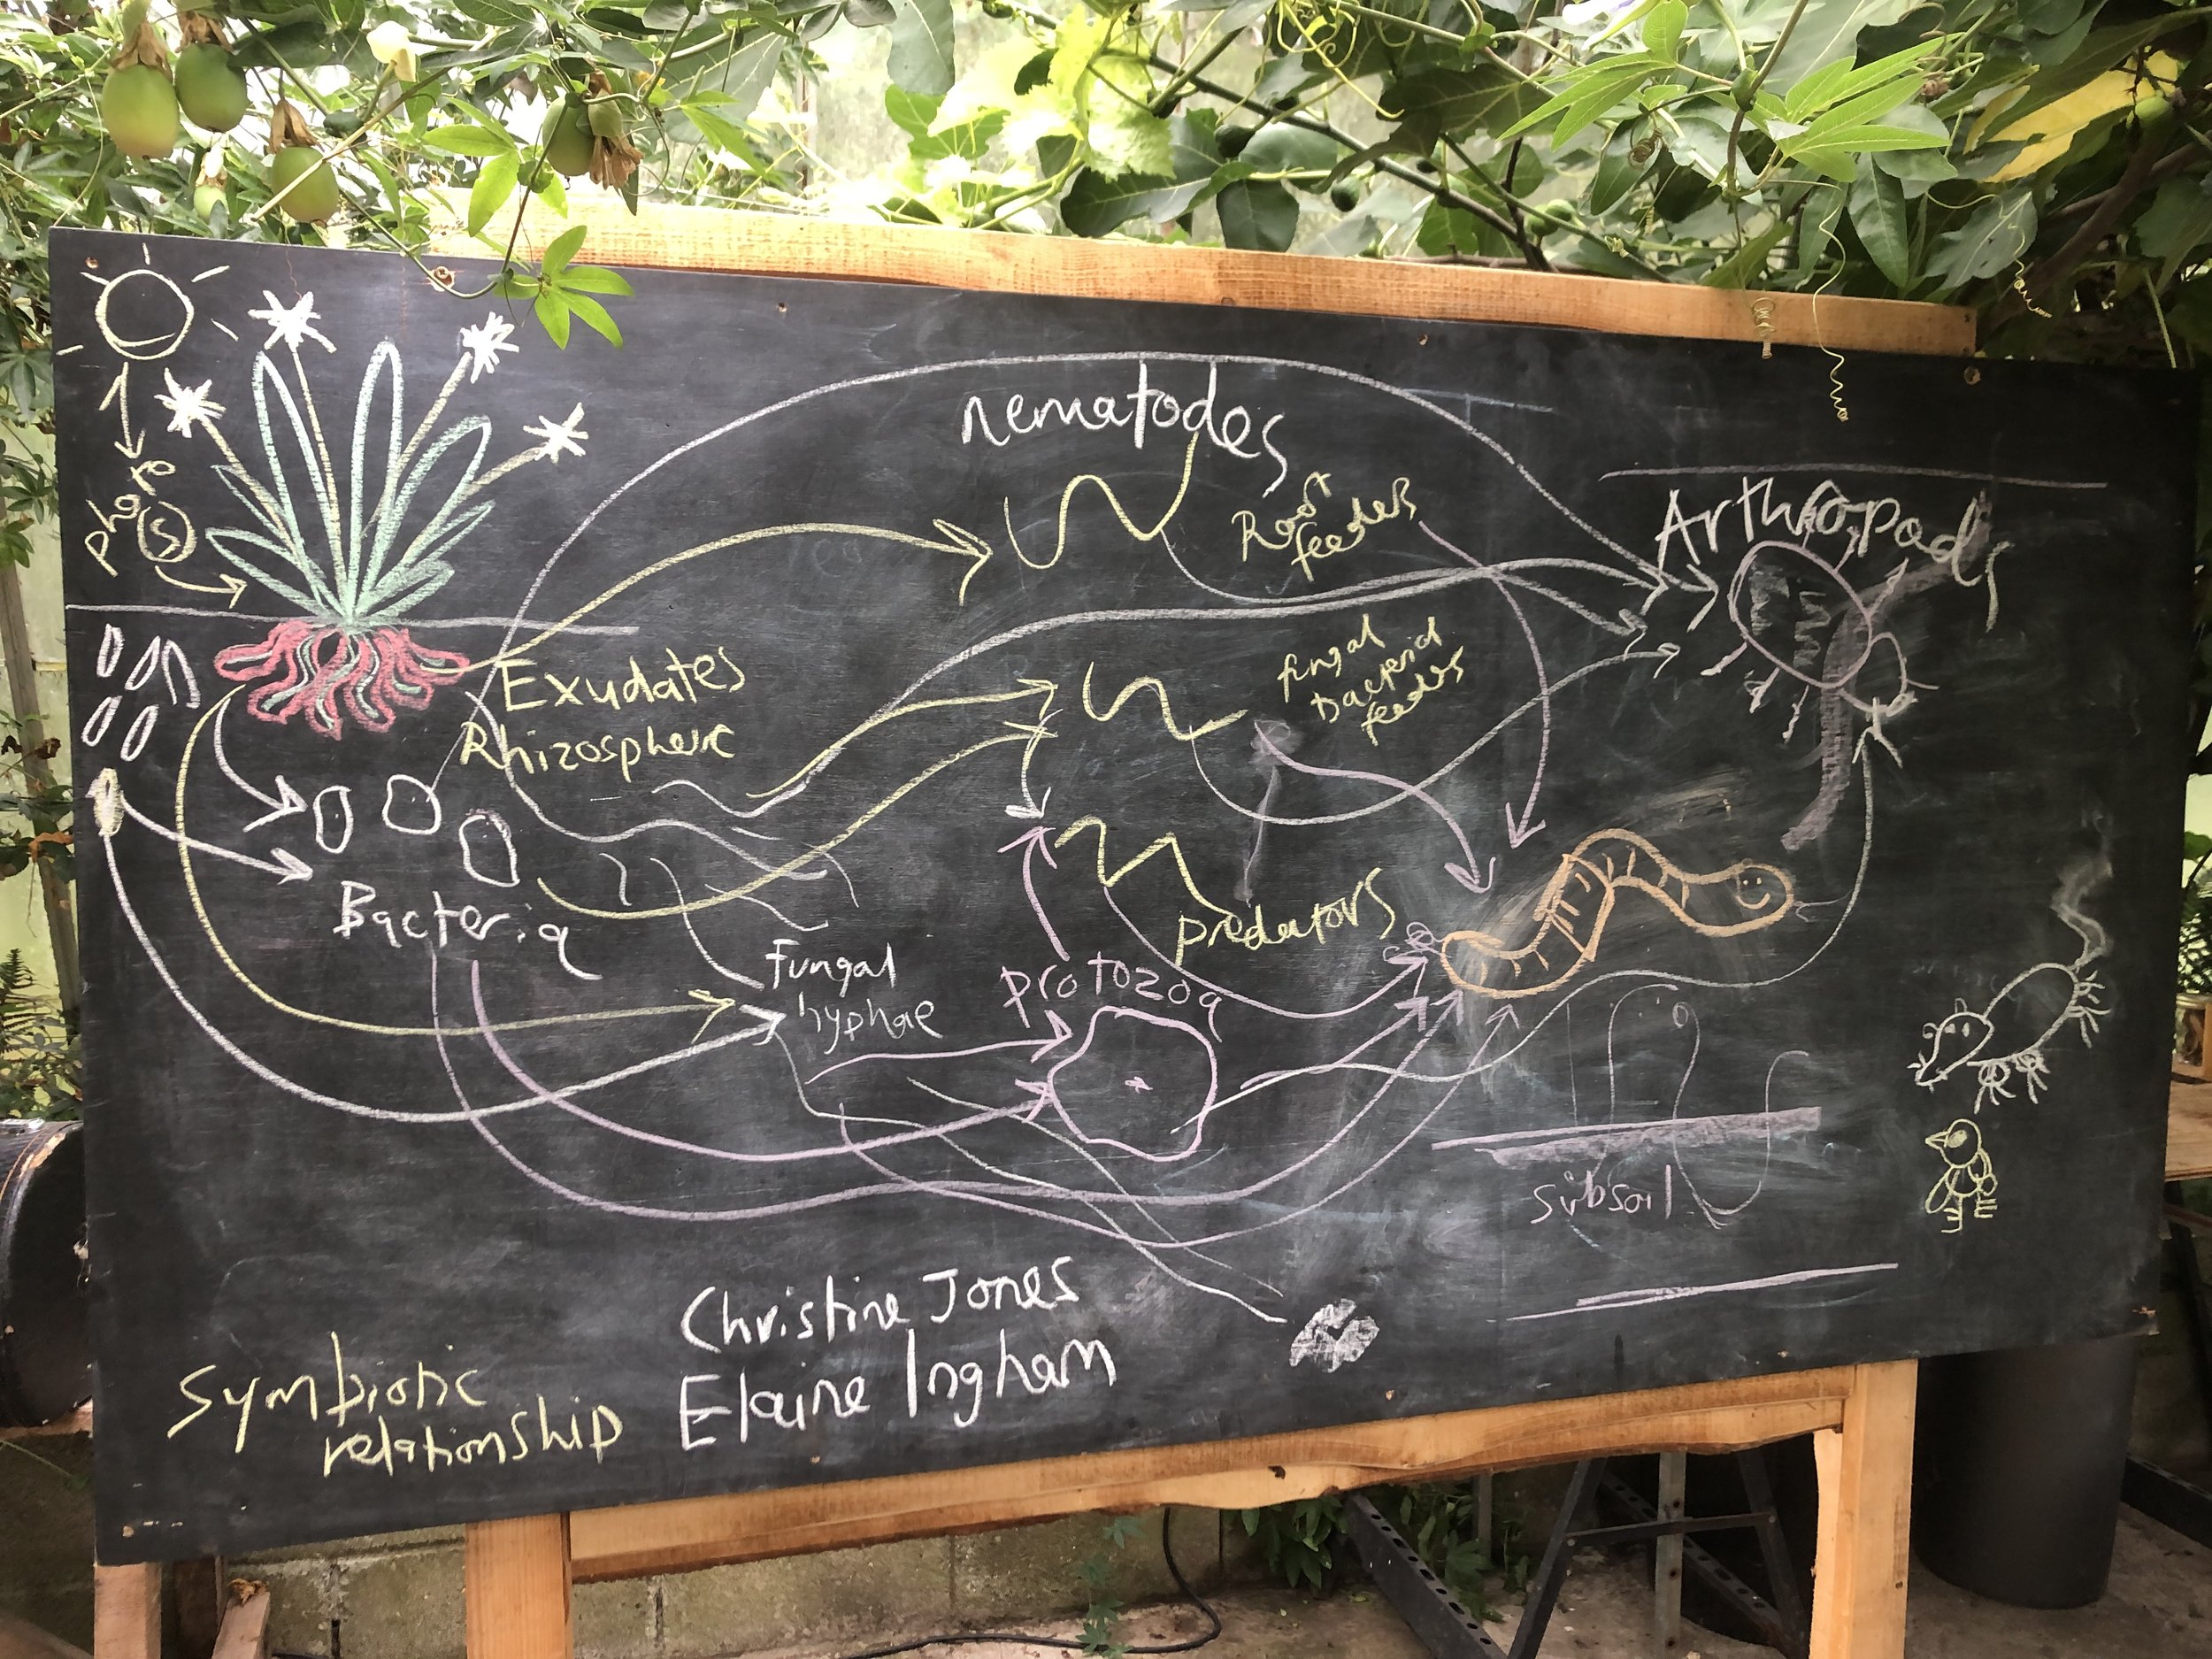 nematodes
Root
feeders
Arthropods
photo
(s)
Exudates
Rhizosphere
fungal
bacterial
feeders
Bacteria
predators
Fungal
hyphae
protozoa
subsoil
Christine Jones
Elaine Ingham
Symbiotic
relationship